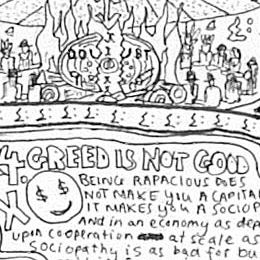 GREED IS NOT GOOD
BEING RAPACIOUS DOES
NOT MAKE YOU A CAPITAL
IT MAKES YOU A SOCIOP
And in an economy as dep
upon cooperation at scale as
Sociopathy is as bad for bu